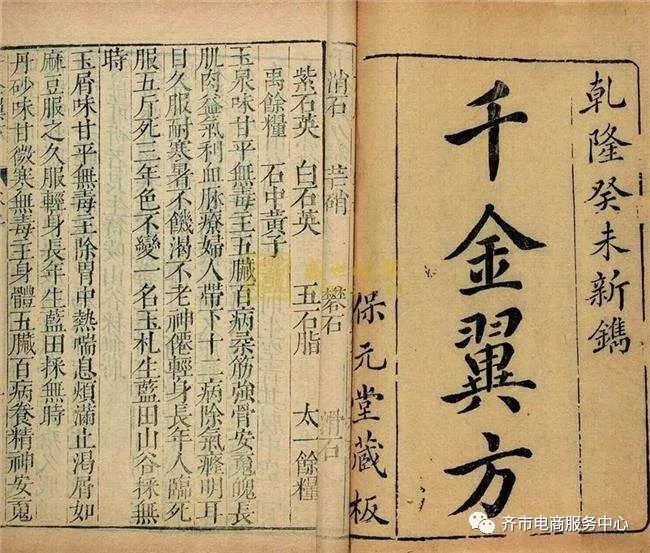 乾隆癸未新鐫
千金翼方
保元堂藏板
消石 芒硝 礬石 滑石
紫石英 白石英 五石脂 太一餘糧
禹餘糧 石中黃子
玉泉味甘平無毒主五臟百病柔筋強骨安䰟魄長
肌肉益氣利血脉療婦人帶下十二病除氣癃明耳
目久服耐寒暑不饑渴不老神僊輕身長年人臨死
服五斤死三年色不變一名玉札生藍田山谷採無
時
玉屑味甘平無毒主除胃中熱喘息煩滿止渴屑如
麻豆服之久服輕身長年生藍田採無時
丹砂味甘微寒無毒主身體五臟百病養精神安䰟
齐市电商服务中心